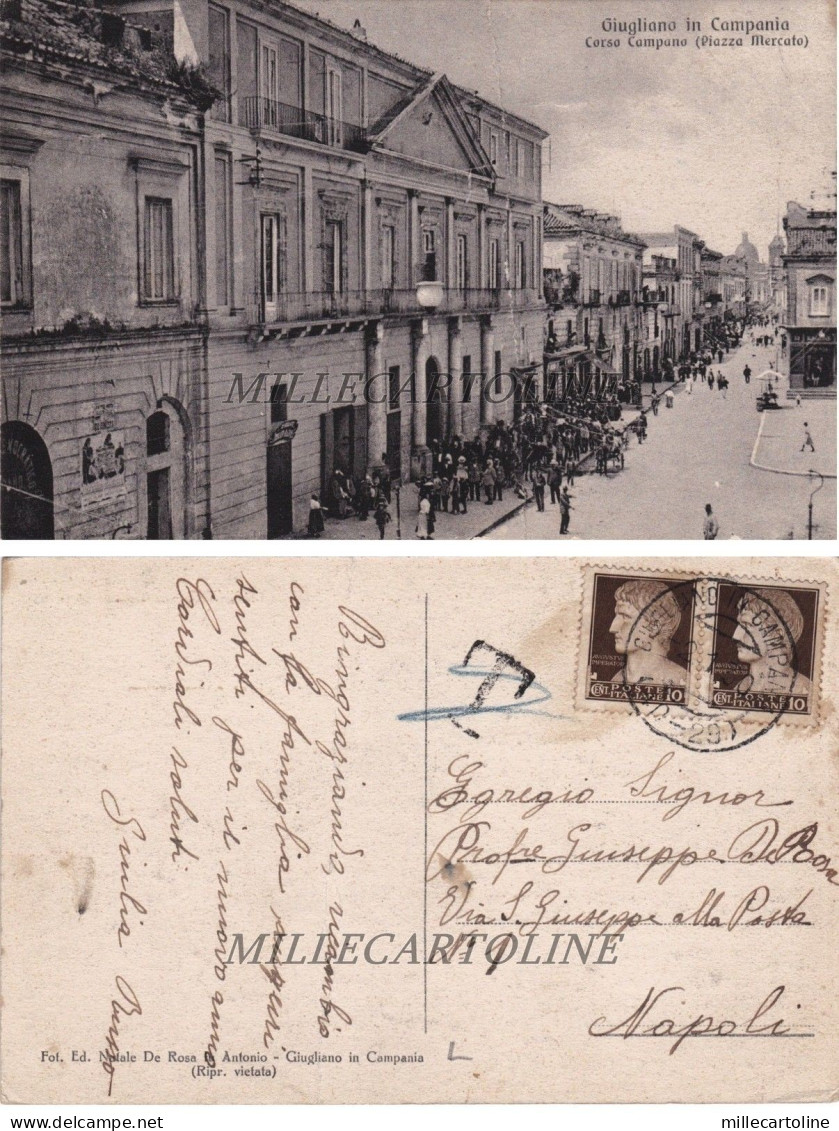 Giugliano in Campania
Corso Campano (Piazza Mercato)
MILLECARTOLINE
Ringraziando, ricambio
con la famiglia auguri
sentiti per il nuovo anno
Cordiali saluti
Giulia Russo
T
AVGVSTVS
IMPERATOR
POSTE
CENT. ITALIANE 10
POSTE
CENT. ITALIANE 10
GIUGLIANO IN CAMPANIA
Egregio Signor
Profre Giuseppe De Rosa
Via S. Giuseppe alla Posta
No 9
Napoli
MILLECARTOLINE
Fot. Ed. Natale De Rosa di Antonio - Giugliano in Campania
(Ripr. vietata)
L
delcampe.net
millecartoline